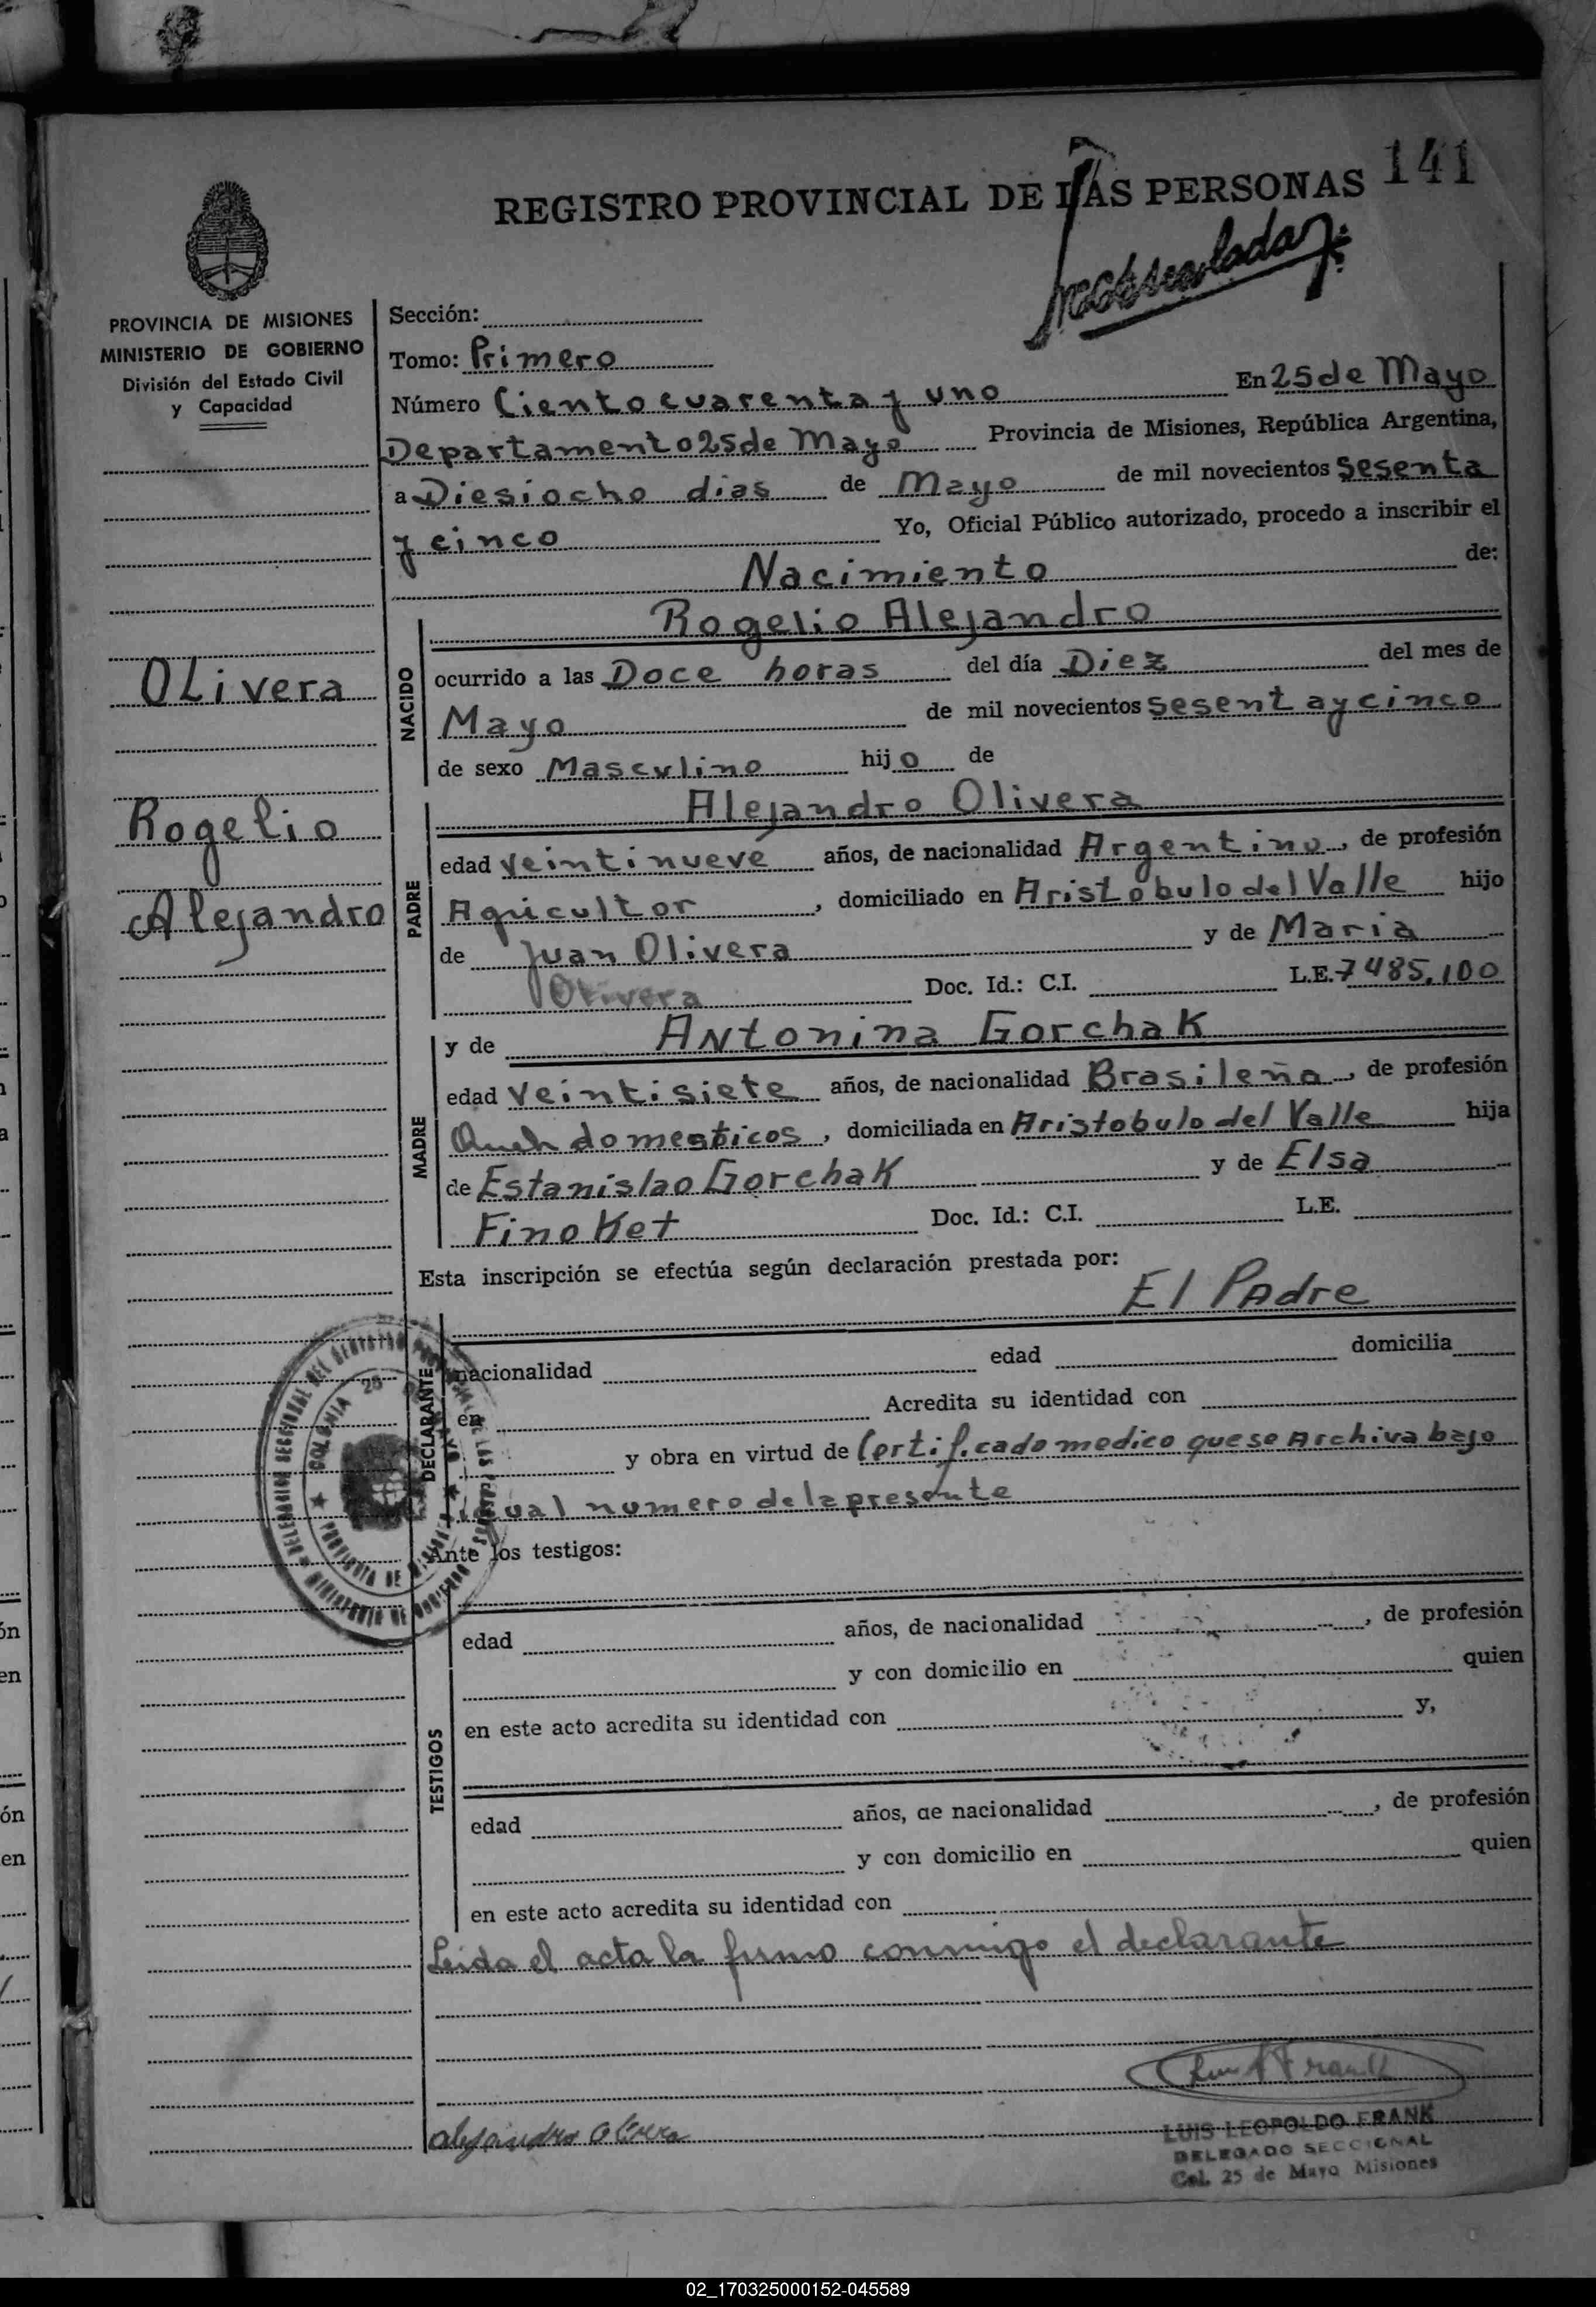 REGISTRO PROVINCIAL DE LAS PERSONAS 141
PROVINCIA DE MISIONES
MINISTERIO DE GOBIERNO
División del Estado Civil
y Capacidad
Sección:
Tomo: Primero
Número Ciento cuarenta y uno En 25 de Mayo
Departamento 25 de Mayo Provincia de Misiones, República Argentina,
a Diesiocho dias de Mayo de mil novecientos Sesenta
y cinco Yo, Oficial Público autorizado, procedo a inscribir el
Nacimiento de:
Olivera
Rogelio
Alejandro
NACIDO
Rogelio Alejandro
ocurrido a las Doce horas del día Diez del mes de
Mayo de mil novecientos Sesenta y cinco
de sexo Masculino hijo de
PADRE
Alejandro Olivera
edad veintinueve años, de nacionalidad Argentino, de profesión
Agricultor, domiciliado en Aristobulo del Valle hijo
de Juan Olivera y de Maria
Olivera Doc. Id.: C.I. L.E. 7485.100
MADRE
y de Antonina Gorchak
edad veintisiete años, de nacionalidad Brasileña, de profesión
domesticos, domiciliada en Aristobulo del Valle hija
de Estanislao Gorchak y de Elsa
Finoket Doc. Id.: C.I. L.E.
Esta inscripción se efectúa según declaración prestada por:
El Padre
DECLARANTE
nacionalidad edad domicilia
en Acredita su identidad con
y obra en virtud de Certificado medico que se Archiva bajo
igual numero de la presente
Ante los testigos:
TESTIGOS
edad años, de nacionalidad , de profesión
y con domicilio en quien
en este acto acredita su identidad con y,
edad años, de nacionalidad , de profesión
y con domicilio en quien
en este acto acredita su identidad con
Leida el acta la firmo conmigo el declarante
alejandro olivera
LUIS LEOPOLDO FRANK
DELEGADO SECCIONAL
Col. 25 de Mayo Misiones
02_170325000152-045589